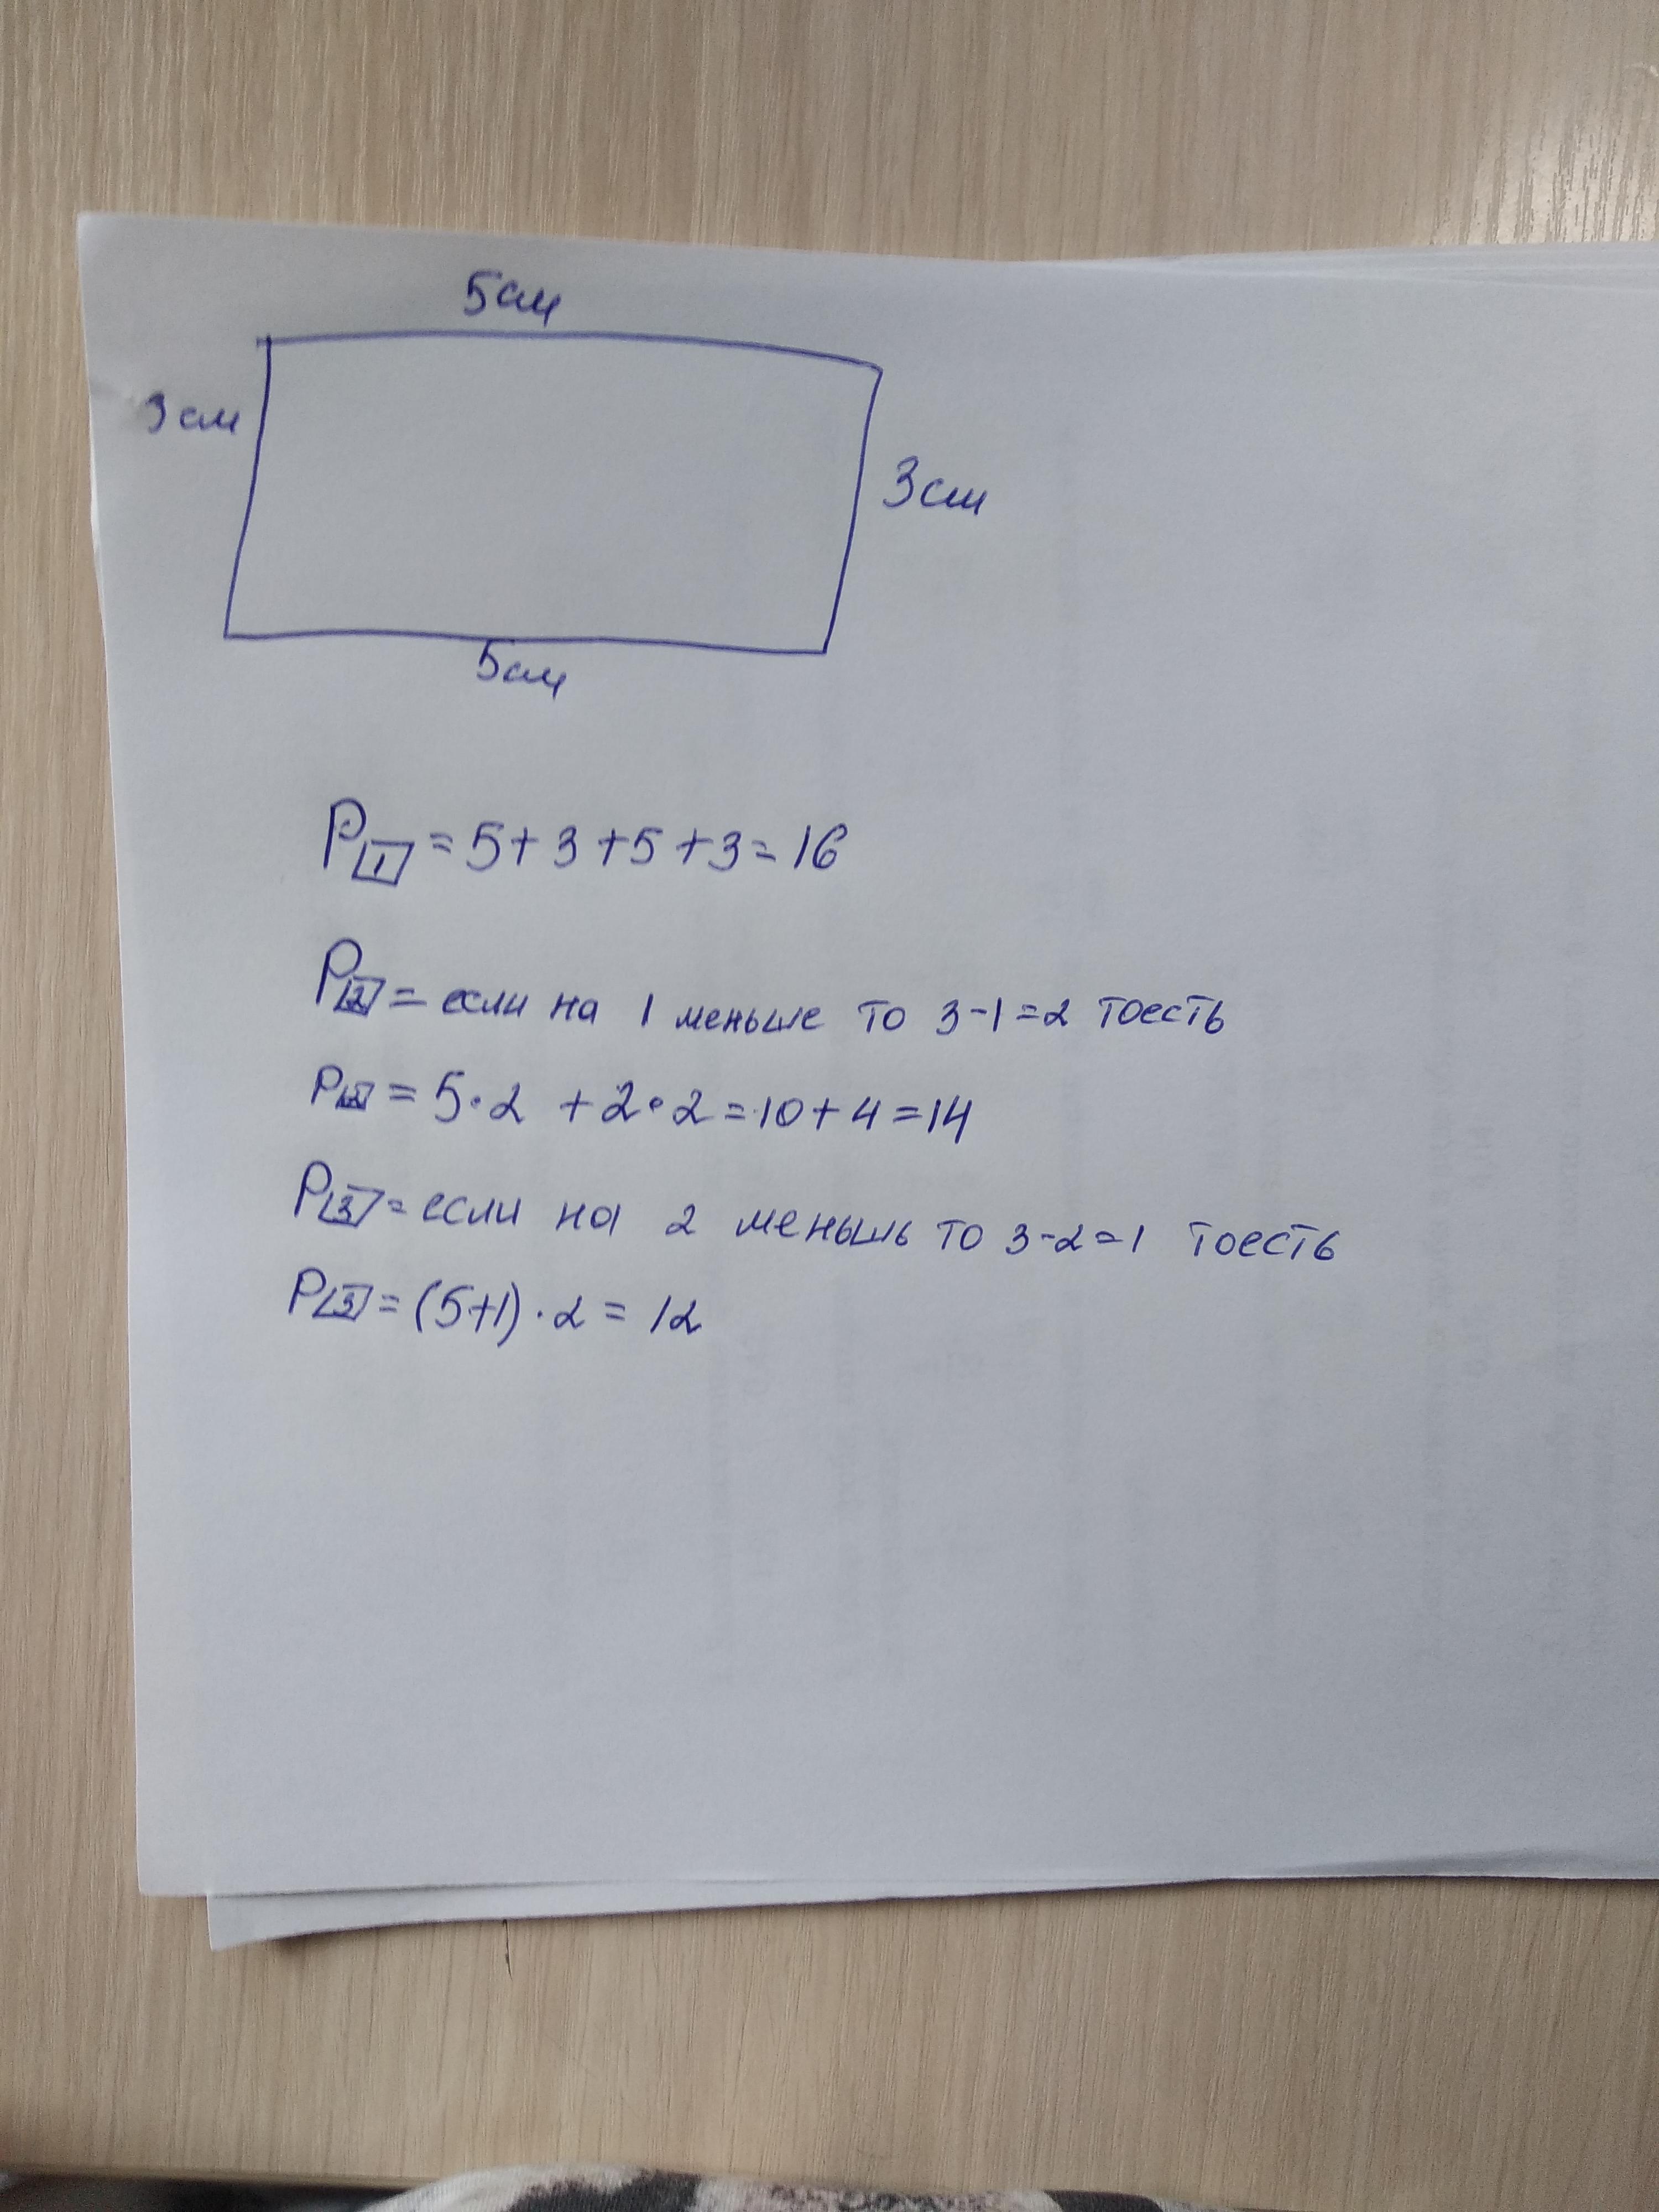 5см
3см
3см
5см
P1 = 5 + 3 + 5 + 3 = 16
P2 = если на 1 меньше то 3-1=2 тоесть
P2 = 5·2 + 2·2 = 10 + 4 = 14
P3 = если на 2 меньшь то 3-2=1 тоесть
P3 = (5+1)·2 = 12